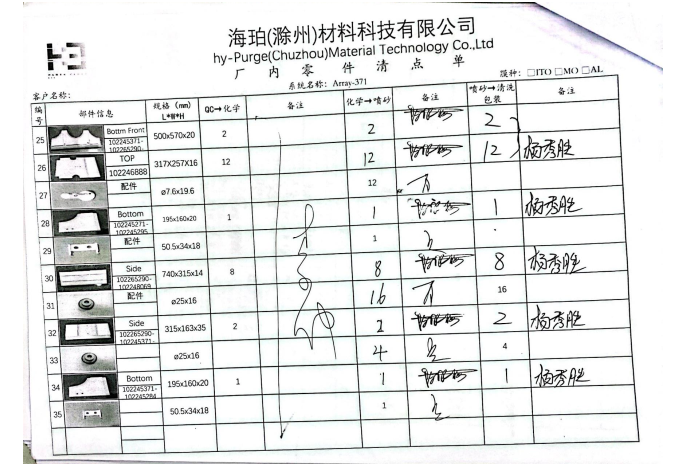 海珀(滁州)材料科技有限公司
hy-Purge(Chuzhou)Material Technology Co.,Ltd
厂 内 零 件 清 点 单
系统名称: Array-371
膜种: □ITO □MO □AL
客户名称:
编号 部件信息 规格 (mm) L*W*H QC→化学 备注 化学→喷砂 备注 喷砂→清洗包装 备注
25 Bottm Front 102245371-102265290- 500x570x20 2 2 2
26 TOP 102246888 317X257X16 12 12 12 杨秀胜
27 配件 ø7.6x19.6 12
28 Bottom 102245271-102245295 195x160x20 1 1 1 杨秀胜
29 配件 50.5x34x18 1
30 Side 102265290-102248069 740x315x14 8 8 8 杨秀胜
31 配件 ø25x16 16 16
32 Side 102265290-102245371- 315x163x35 2 2 2 杨秀胜
33 ø25x16 4 4
34 Bottom 102245371-102245284 195x160x20 1 1 1 杨秀胜
35 50.5x34x18 1